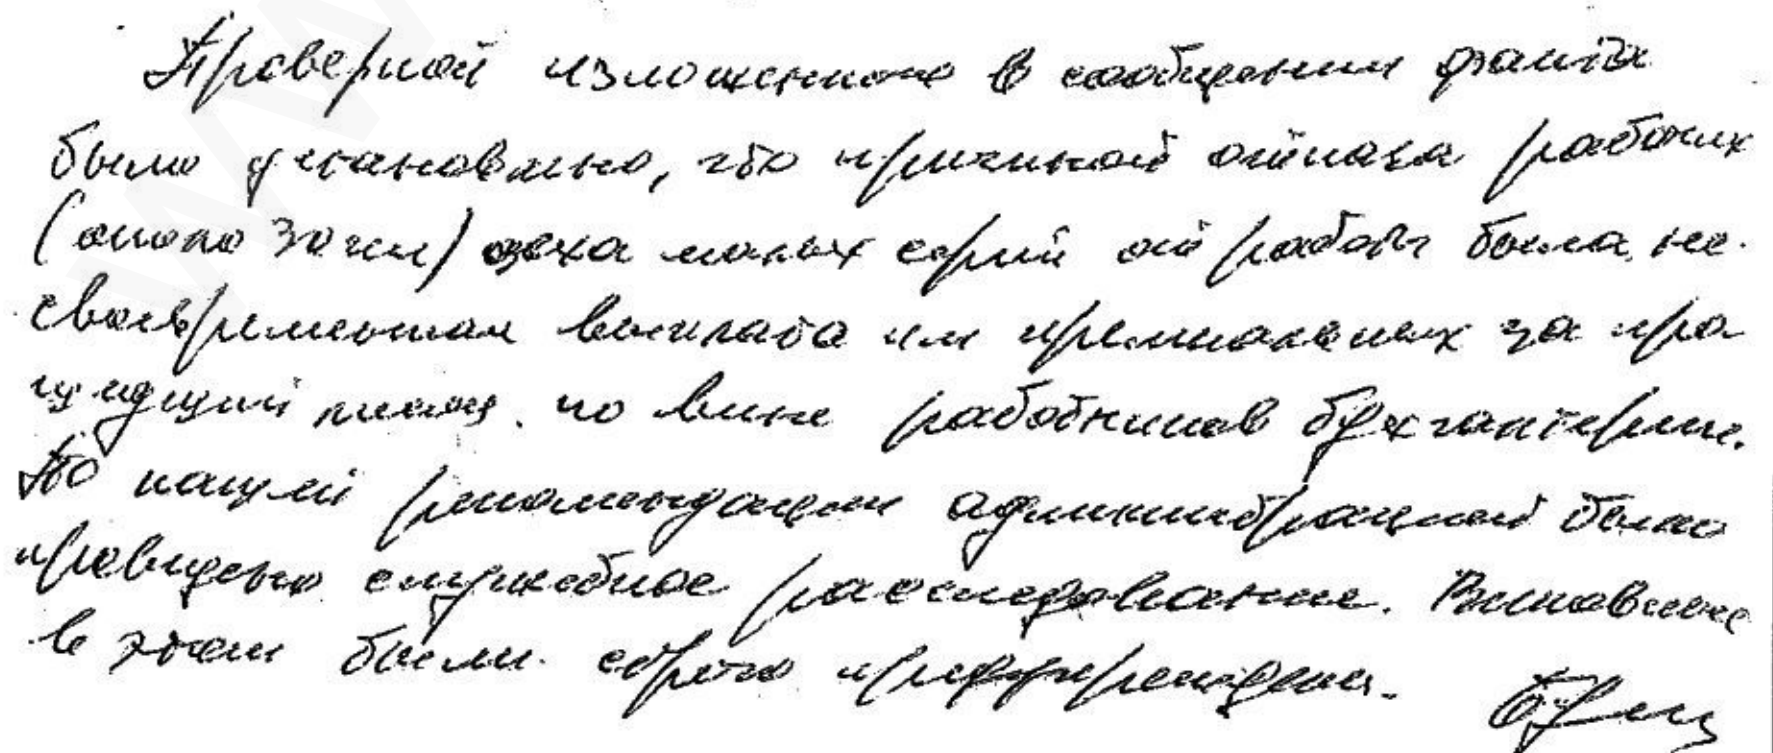 Проверкой изложенного в сообщении факта
было установлено, что причиной отказа рабочих
(около 30 чел) цеха малых серий от работы была не-
своевременная выплата им премиальных за пре
дыдущий месяц по вине работников бухгалтерии.
По нашей рекомендации администрацией было
проведено служебное расследование. Виновные
в этом были строго предупреждены.